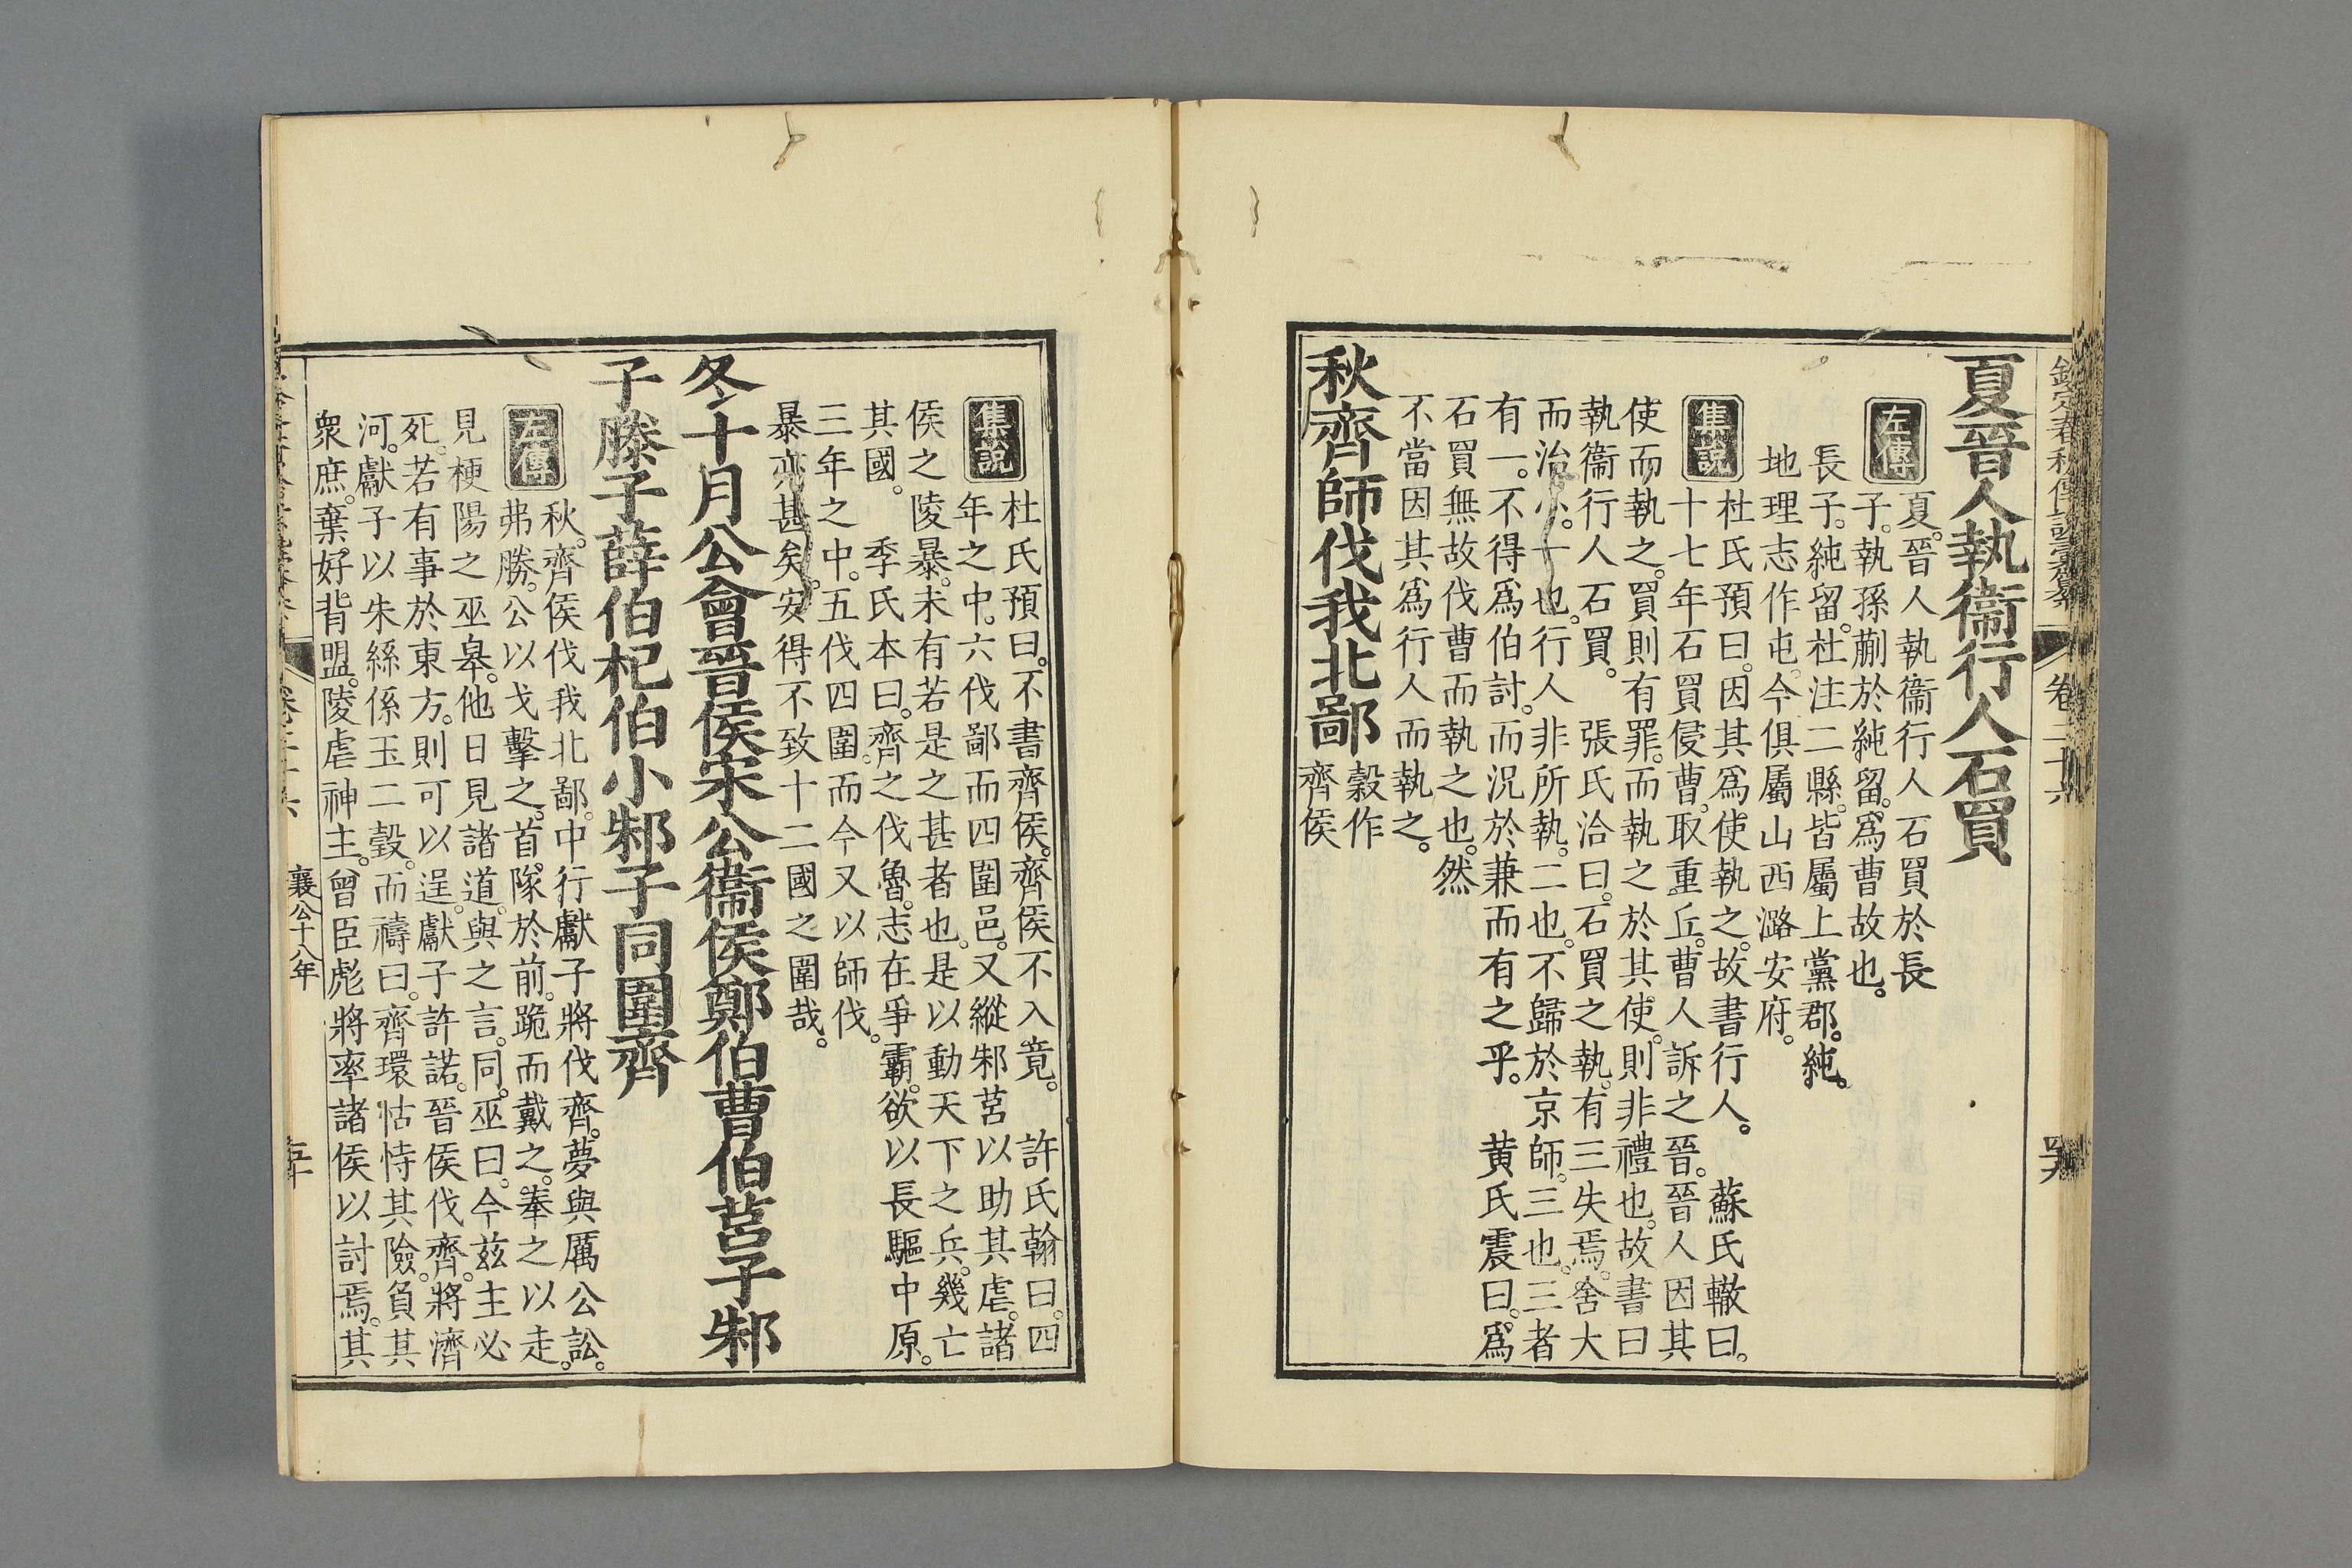 欽定春秋傳說彙纂 卷二十六
夏晉人執衞行人石買
左傳
夏。晉人執衞行人石買於長
子。執孫蒯於純留。爲曹故也。
長子。純留。杜注二縣。皆屬上黨郡。純。
地理志作屯。今俱屬山西潞安府。
集說
杜氏預曰。因其爲使執之。故書行人。 蘇氏轍曰。
十七年石買侵曹。取重丘。曹人訴之晉。晉人因其
使而執之。買則有罪。而執之於其使。則非禮也。故書曰
執衞行人石買。 張氏洽曰。石買之執。有三失焉。舍大
而治小。一也。行人非所執。二也。不歸於京師。三也。三者
有一。不得爲伯討。而況於兼而有之乎。 黃氏震曰。爲
石買無故伐曹而執之也。然
不當因其爲行人而執之。
秋齊師伐我北鄙 穀作
齊侯
集說
杜氏預曰。不書齊侯。齊侯不入竟。 許氏翰曰。四
年之中。六伐鄙而四圍邑。又縱邾莒以助其虐。諸
侯之陵暴。未有若是之甚者也。是以動天下之兵。幾亡
其國。 季氏本曰。齊之伐魯。志在爭霸。欲以長驅中原。
三年之中。五伐四圍。而今又以師伐。
暴亦甚矣。安得不致十二國之圍哉。
冬十月公會晉侯宋公衞侯鄭伯曹伯莒子邾
子滕子薛伯杞伯小邾子同圍齊
左傳
秋。齊侯伐我北鄙。中行獻子將伐齊。夢與厲公訟。
弗勝。公以戈擊之。首隊於前。跪而戴之。奉之以走。
見梗陽之巫皋。他日見諸道。與之言。同。巫曰。今茲主必
死。若有事於東方。則可以逞。獻子許諾。晉侯伐齊。將濟
河。獻子以朱絲係玉二瑴。而禱曰。齊環怙恃其險。負其
衆庶。棄好。背盟。陵虐神主。曾臣彪將率諸侯以討焉。其
襄公十八年